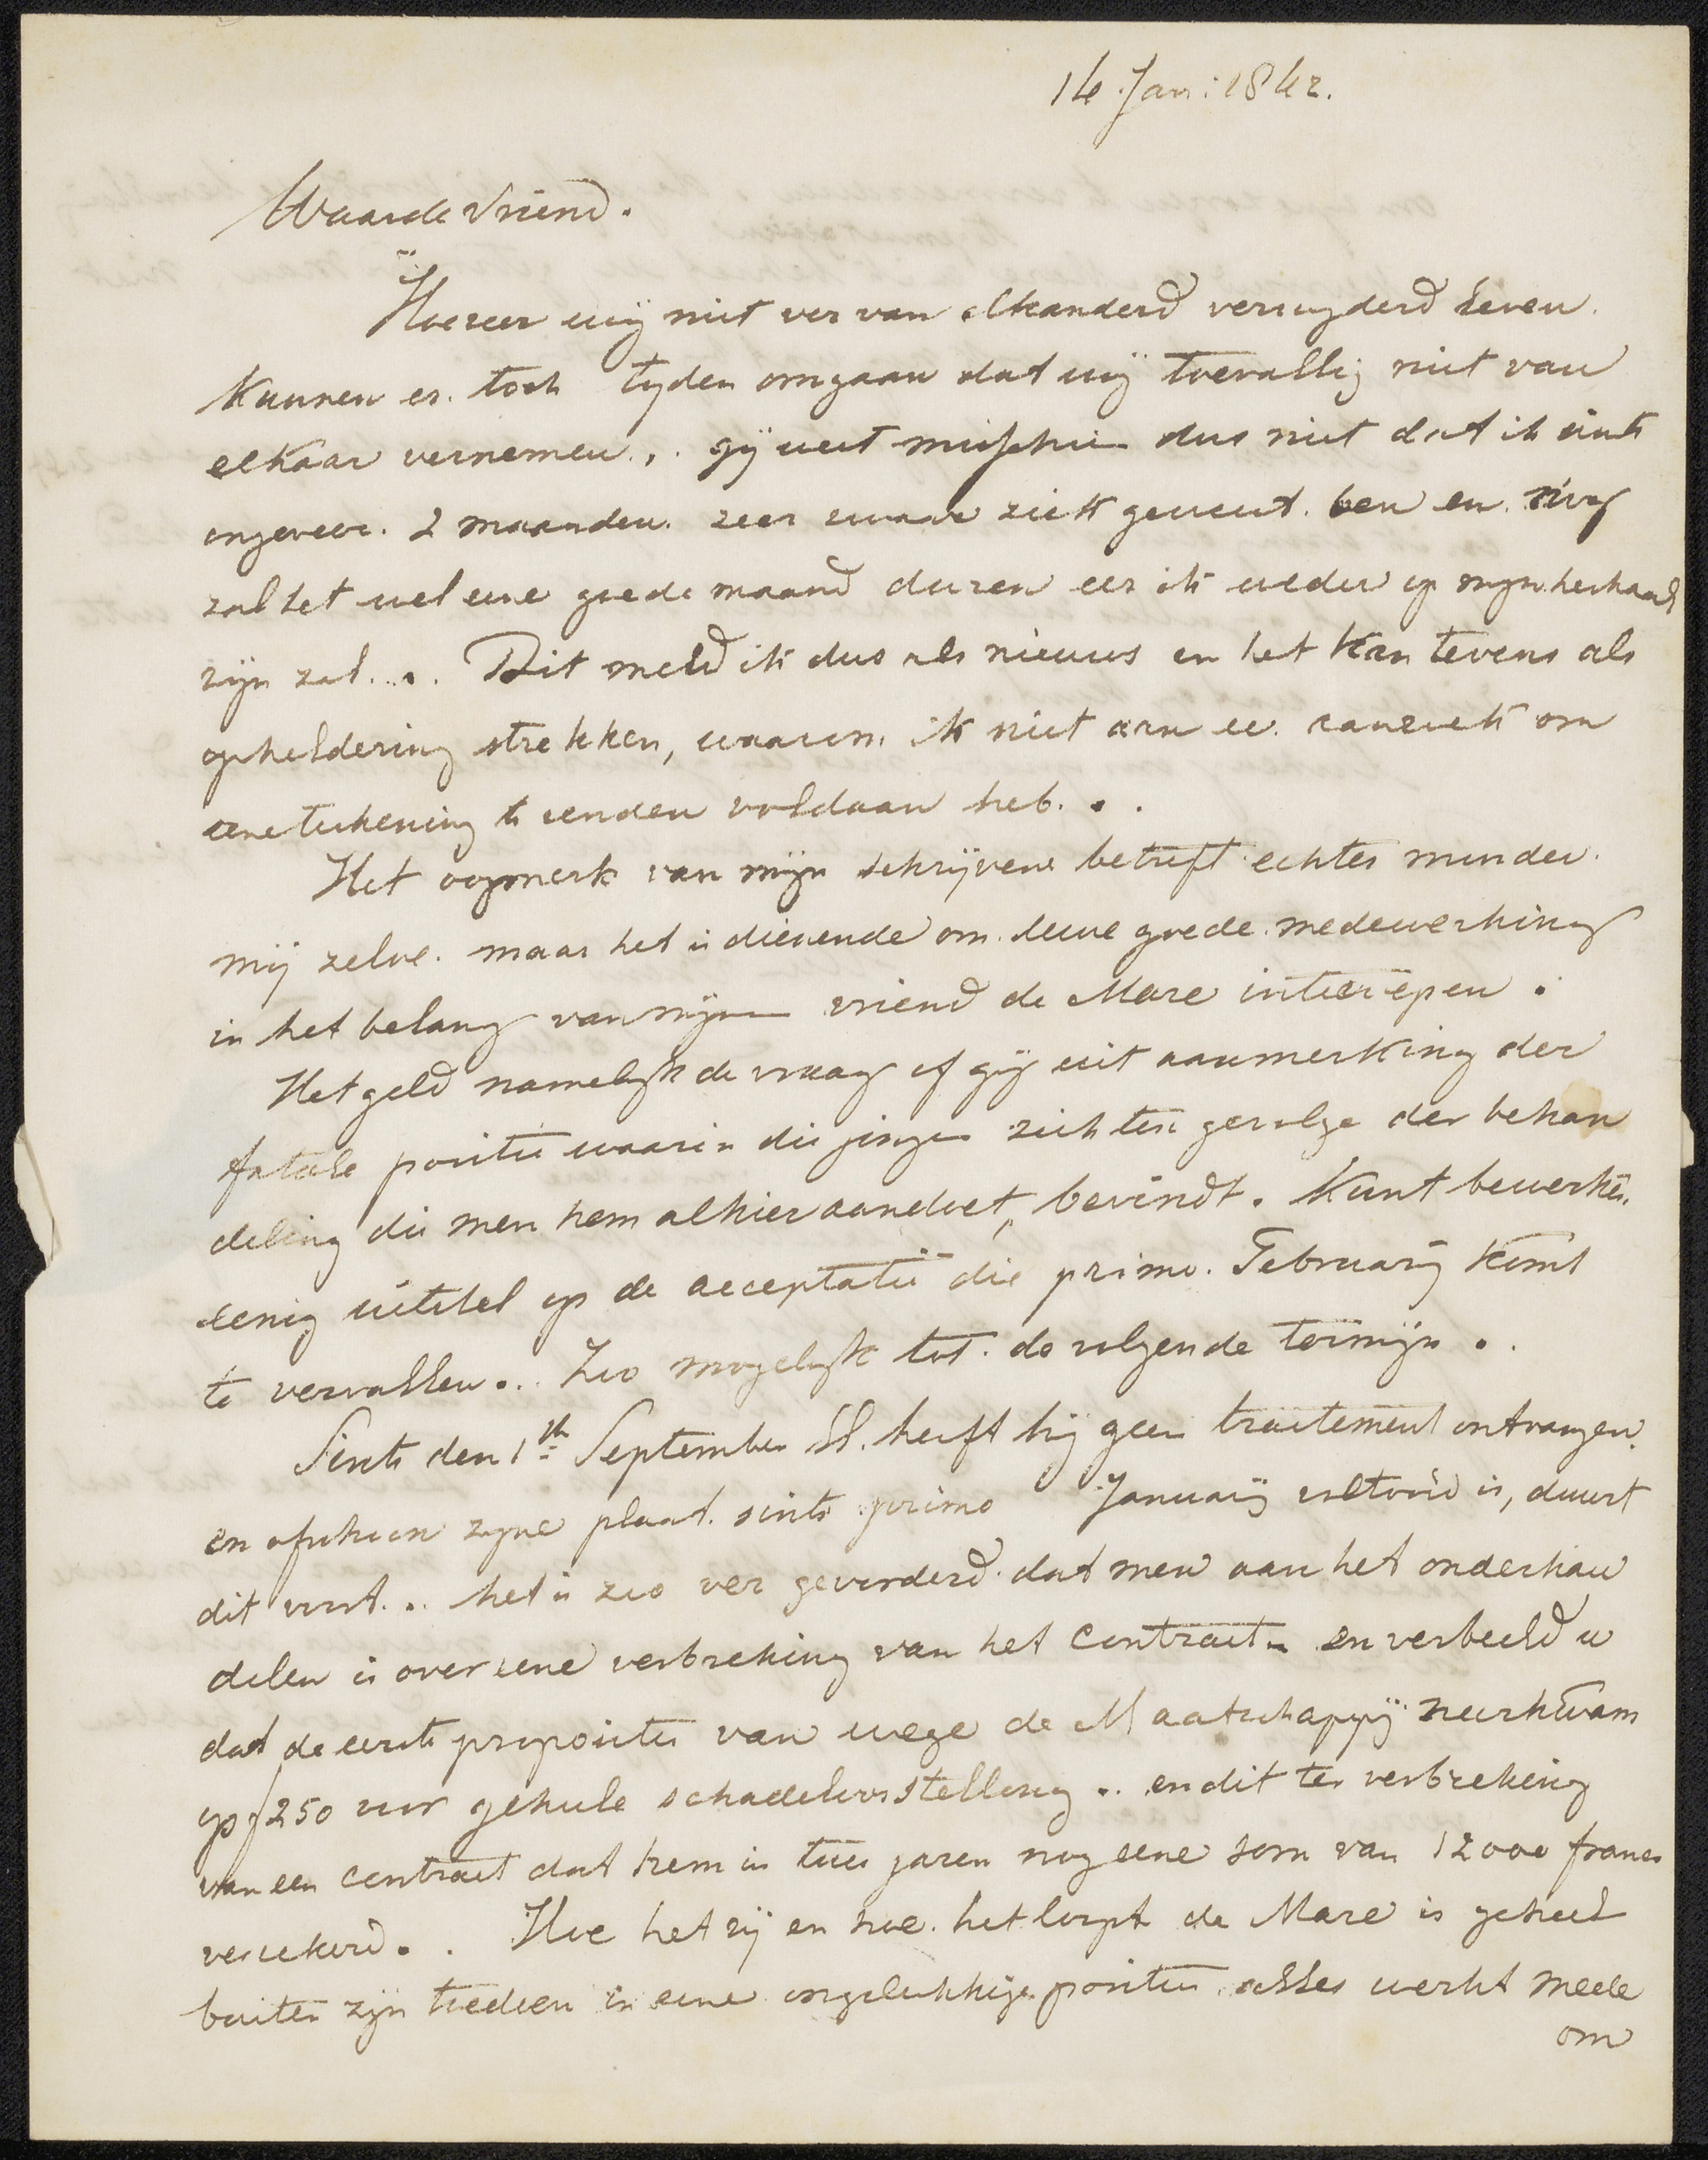 14 Jan: 1842.
Waarde Vriend.
Hoezeer wij niet ver van elkanderd verwyderd leven
kunnen er toch tyden omgaan dat wij toevallig niet van
elkaar vernemen.. gij weet misschien dus niet dat ik sints
ongeveer 2 maanden zeer zwaar ziek geweest ben en nog
zal het wel eene goede maand duren eer ik weder op mijn
zijn zal... Dit meld ik dus als nieuws en het kan tevens als
opheldering strekken, waarom ik niet aan uw aanzoek om
eene teekening te zenden voldaan heb...
Het oogmerk van mijn schrijven betreft echter minder
mij zelve. maar het is dienende om uwe goede medewerking
in het belang van mijnen vriend de Mare interoepen.
Het geld namelijk de vraag of gij uit aanmerking der
fatale positie waarin die jongen zich ten gevolge der behan
deling die men hem alhier aandoet, bevindt. Kunt bewerken
eenig uitstel op de acceptatie die primo February komt
te vervallen... Zoo mogelijk tot de volgende termijn..
Sints den 1th September ll. heeft hij geen traitement ontvangen
en ofschoon zyne plaat sints primo January voltooid is, duurt
dit voort... het is zoo ver gevorderd dat men aan het onderhan
delen is over eene verbreking van het contract en verbeeld u
dat de eerste propositie van wege de Maatschappij neerkwam
op ƒ250 voor geheele schadeloosstelling.. en dit ter verbreking
van een contract dat hem in twee jaren nog eene som van 12000 francs
verzekerd.. Hoe het zij en hoe het loopt de Mare is geheel
buiten zijn toedoen in eene ongelukkige positie alles werkt meede
om